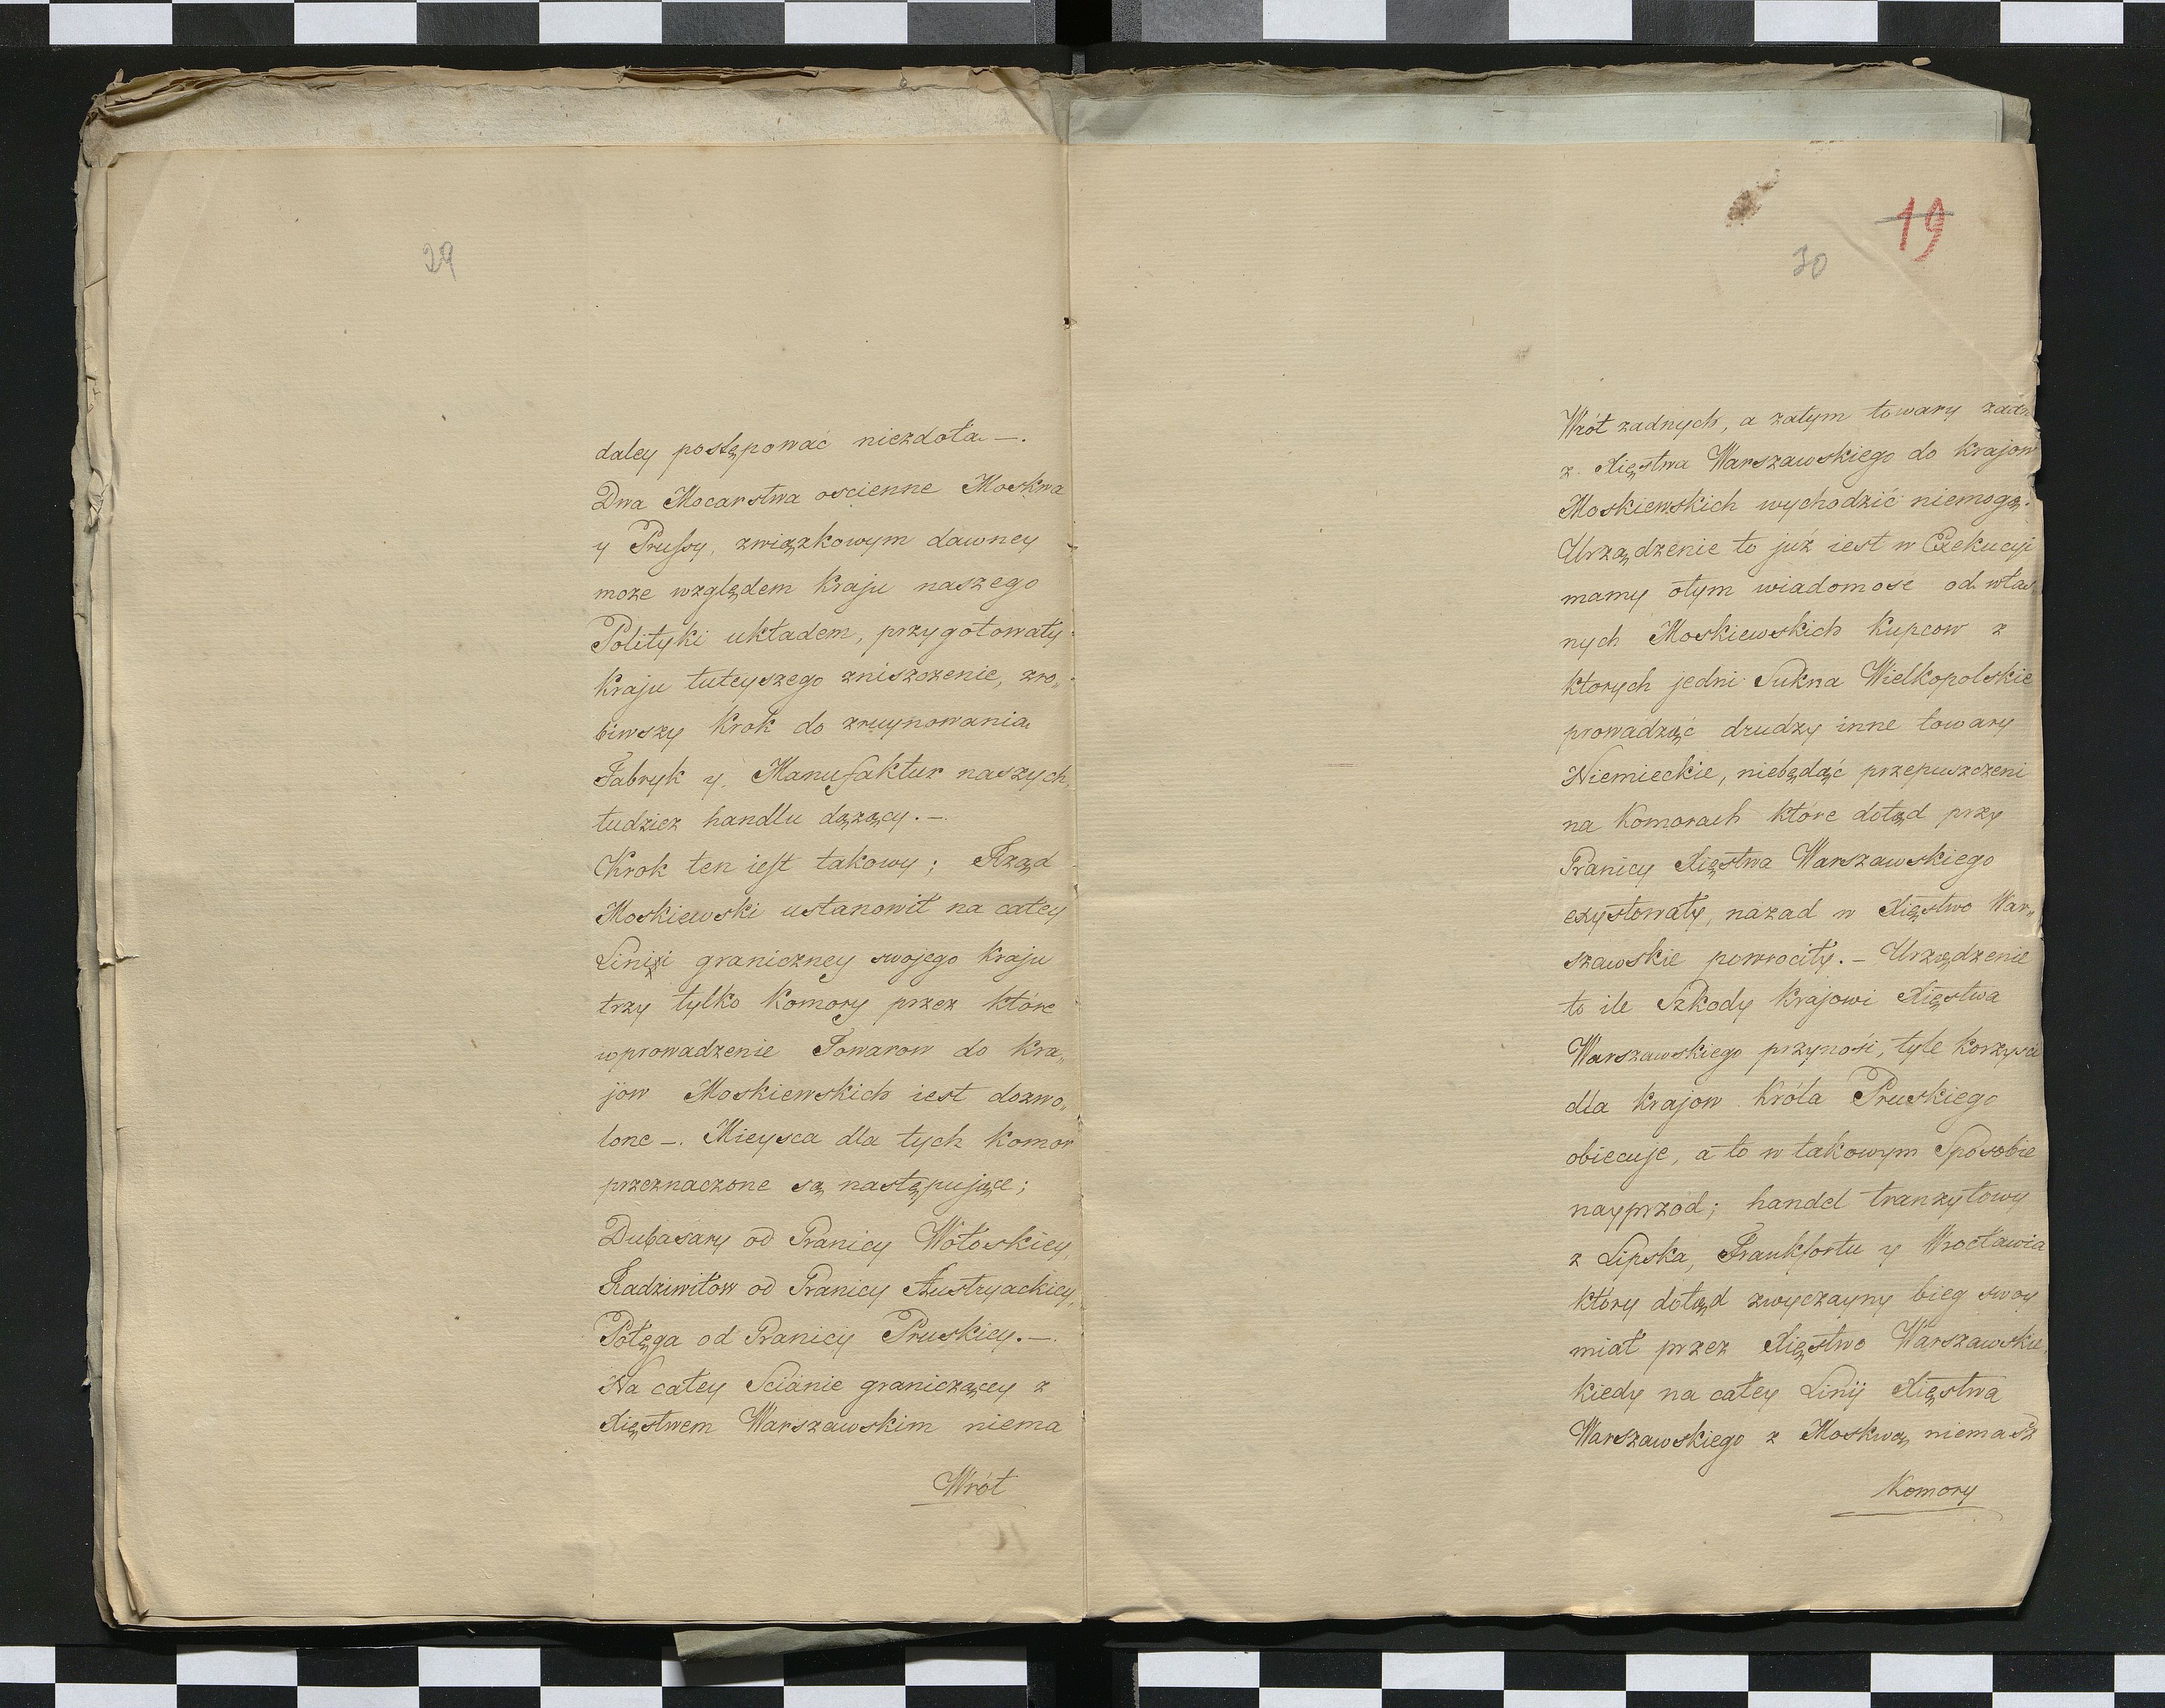 29
daley postępować niezdoła —.
Dwa Mocarstwa oscienne Moskwa
y Prussy, związkowym dawney
może względem Kraju naszego
Polityki układem, przygotowały
Kraju tuteyszego zniszczenie, zro„
biwszy Krok do zruynowania
Fabryk y Manufaktur naszych,
tudziez handlu dązący. —
Krok ten iest takowy; Rząd
Moskiewski ustanowił na całey
Linii graniczney swojego Kraju
trzy tylko Komory przez które
wprowadzenie Towarow do Kra„
jów Moskiewskich iest dozwo„
lone —. Mieysca dla tych Komor
przeznaczone są następujące;
Dubasary od Granicy Wołoskiey,
Radziwiłow od Granicy Austryackiey,
Połęga od Granicy Pruskiey. —
Na całey Scianie graniczącey z
Xięstwem Warszawskim niema
Wrót
19
30
Wrót zadnych, a zatym towary zadn
z Xięstwa Warszawskiego do Krajow
Moskiewskich wychodzić niemogą.
Urządzenie to już iest w Exekucyi
mamy otym wiadomość od włas
nych Moskiewskich Kupcow z
ktorych jedni Sukna Wielkopolskie
prowadząć drudzy inne towary
Niemieckie, niebędąć przepuszczeni
na Komorach które dotąd przy
Granicy Xięstwa Warszawskiego
exystowały, nazad w Xięstwo War„
szawskie powrocily. — Urządzenie
to ile Szkody Krajowi Xięstwa
Warszawskiego przynosi, tyle korzysci
dla Krajow Króla Pruskiego
obiecuje, a to w takowym Sposobie
nayprzod; handel tranzytowy
z Lipska, Frankfortu y Wrocławia
który dotąd zwyczayny bieg swoy
miał przez Xięstwo Warszawskie,
kiedy na całey Linij Xięstwa
Warszawskiego z Moskwą niemasz
Komory